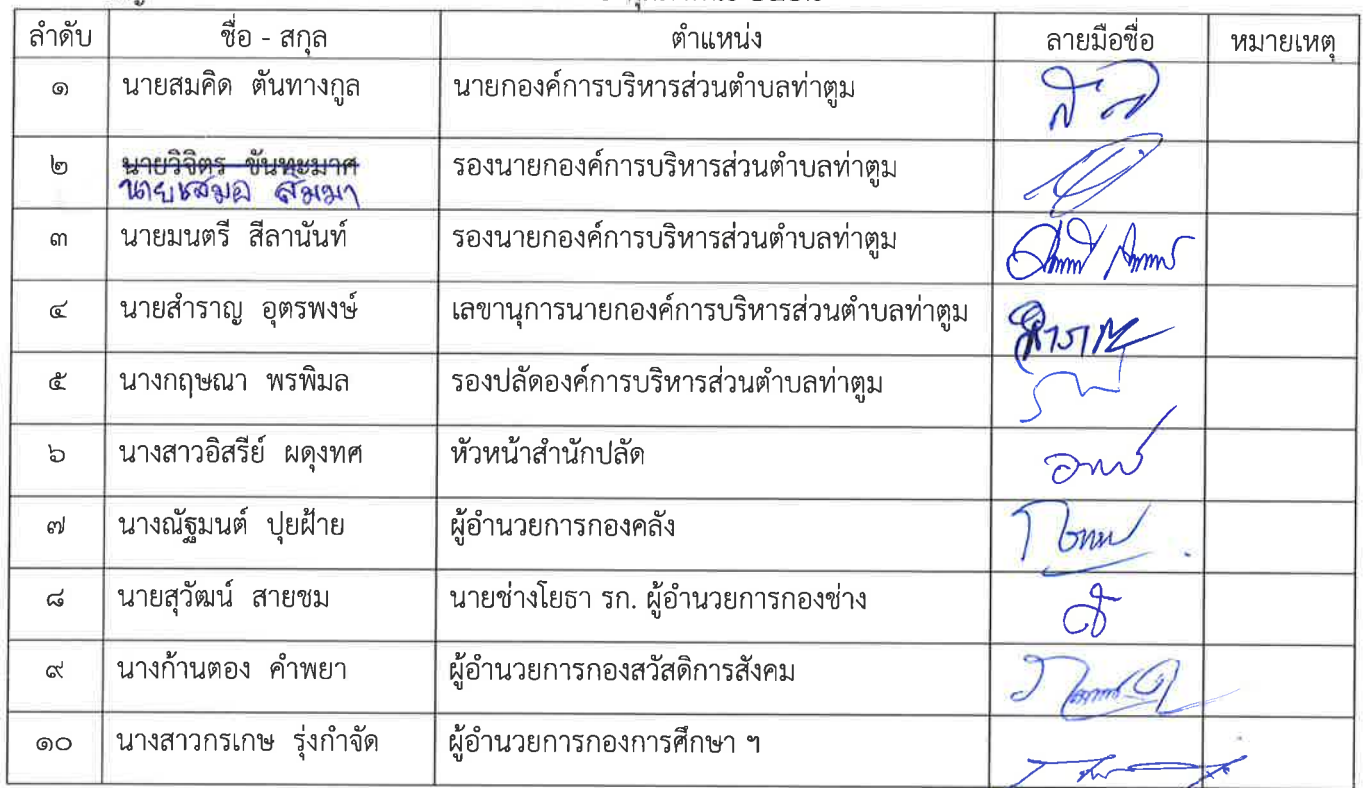 ลำดับ ชื่อ - สกุล ตำแหน่ง ลายมือชื่อ หมายเหตุ
๑ นายสมคิด ตันทางกูล นายกองค์การบริหารส่วนตำบลท่าตูม
๒ นายวิจิตร ขันทะมาศ รองนายกองค์การบริหารส่วนตำบลท่าตูม
นายเสมอ สัมมา
๓ นายมนตรี สีลานันท์ รองนายกองค์การบริหารส่วนตำบลท่าตูม
๔ นายสำราญ อุตรพงษ์ เลขานุการนายกองค์การบริหารส่วนตำบลท่าตูม สำราญ
๕ นางกฤษณา พรพิมล รองปลัดองค์การบริหารส่วนตำบลท่าตูม
๖ นางสาวอิสรีย์ ผดุงทศ หัวหน้าสำนักปลัด
๗ นางณัฐมนต์ ปุยฝ้าย ผู้อำนวยการกองคลัง
๘ นายสุวัฒน์ สายชม นายช่างโยธา รก. ผู้อำนวยการกองช่าง
๙ นางก้านตอง คำพยา ผู้อำนวยการกองสวัสดิการสังคม
๑๐ นางสาวกรเกษ รุ่งกำจัด ผู้อำนวยการกองการศึกษา ฯ